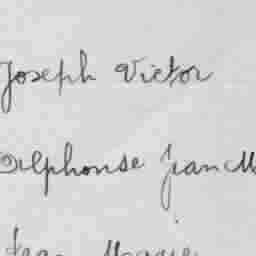 Joseph Victor
Alphonse Jean M
Jean Marie